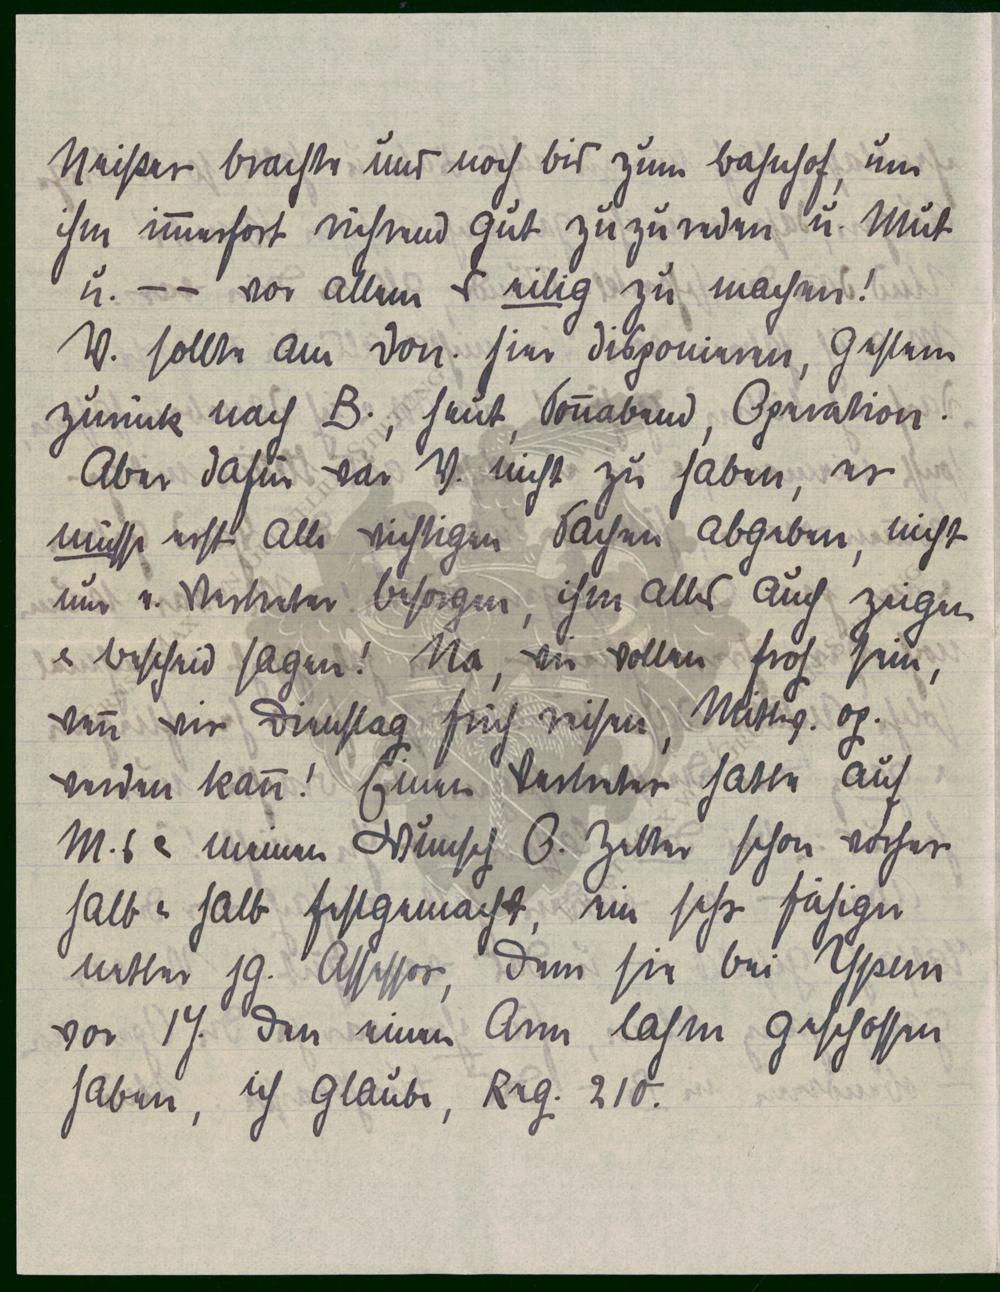 Neißer brachte uns noch bis zum bahnhof, um
ihm im̄erfort rührend gut zuzureden u. Mut
u. -- vor allem s eilig zu machen!
V. sollte am Don. hier disponieren, gestern
zurück nach B., heut, Son̄abend, Operation.
Aber dafür war V. nicht zu haben, er
müsse erst alle wichtigen Sachen abgeben, nicht
nur e. Vertreter besorgen, ihm alles auch zeigen
& bescheid sagen! Na, wir wollen froh sein,
wen̄ wir Dienstag früh reisen, Mittw. op.
werden kan̄! Einen Vertreter hatte auf
M.s & meinen Wunsch O. Zelter schon vorher
halb & halb festgemacht, ein sehr fähiger
netter jg. Assessor, dem sie bei Ypern
vor 1J. den einen Arm lahm geschossen
haben, ich glaube, Reg. 210.